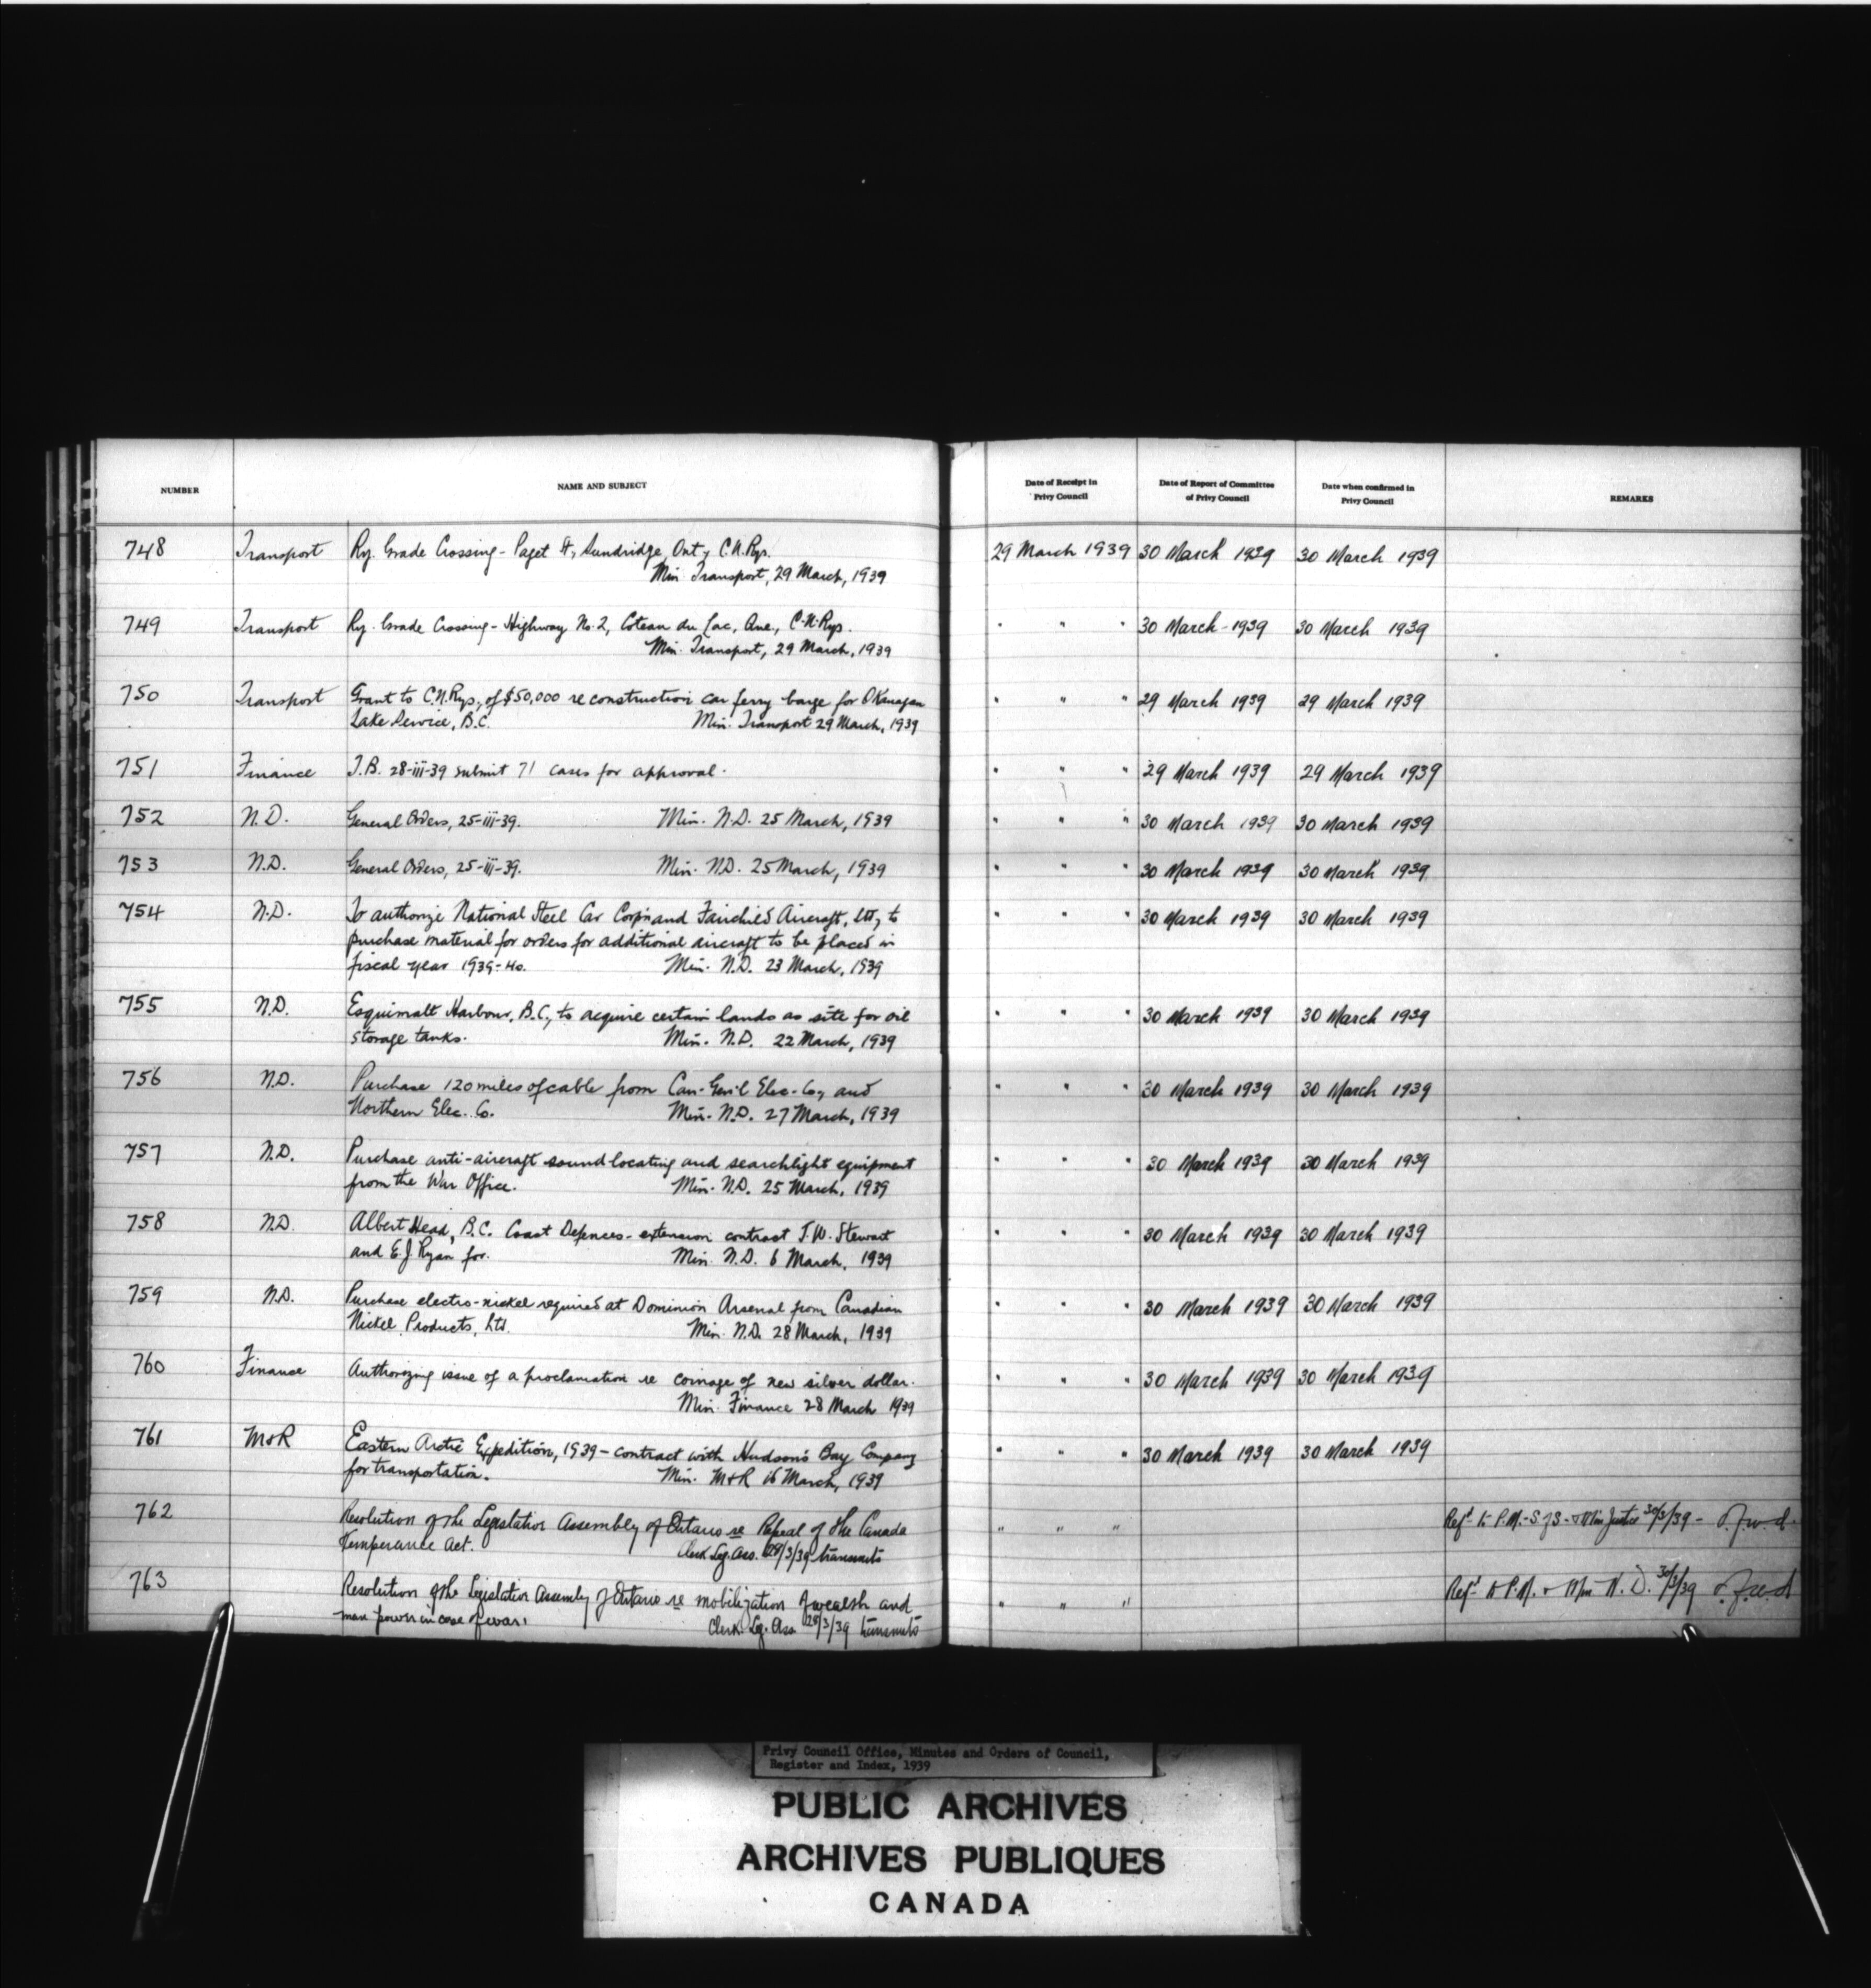 NUMBER NAME AND SUBJECT Date of Receipt in Privy Council Date of Report of Committee of Privy Council Date when confirmed in Privy Council REMARKS
748 Transport Ry. Grade Crossing - Paget St, Sundridge, Ont, C.N.Rys. 29 March 1939 30 March 1939 30 March 1939
Min. Transport, 29 March, 1939
749 Transport Ry. Grade Crossing - Highway No. 2, Coteau du Lac, Que., C.N.Rys. " " " 30 March 1939 30 March 1939
Min. Transport, 29 March, 1939
750 Transport Grant to C.N.Rys, of $50,000 re construction car ferry barge for Okanagan " " " 29 March 1939 29 March 1939
Lake Service, B.C. Min. Transport 29 March, 1939
751 Finance T.B. 28-iii-39 submit 71 cases for approval. " " " 29 March 1939 29 March 1939
752 N.D. General Orders, 25-iii-39. Min. N.D. 25 March, 1939 " " " 30 March 1939 30 March 1939
753 N.D. General Orders, 25-iii-39. Min. N.D. 25 March, 1939 " " " 30 March 1939 30 March 1939
754 N.D. To authorize National Steel Car Corp'n and Fairchild Aircraft, Ltd, to " " " 30 March 1939 30 March 1939
purchase material for orders for additional aircraft to be placed in
fiscal year 1939-40. Min. N.D. 23 March, 1939
755 N.D. Esquimalt Harbour, B.C., to acquire certain lands as site for oil " " " 30 March 1939 30 March 1939
storage tanks. Min. N.D. 22 March, 1939
756 N.D. Purchase 120 miles of cable from Can. Gen'l Elec. Co, and " " " 30 March 1939 30 March 1939
Northern Elec. Co. Min. N.D. 27 March, 1939
757 N.D. Purchase anti-aircraft sound locating and searchlight equipment " " " 30 March 1939 30 March 1939
from the War Office. Min. N.D. 25 March, 1939
758 N.D. Albert Head, B.C. Coast Defences - extension contract J.W. Stewart " " " 30 March 1939 30 March 1939
and E.J. Ryan for. Min. N.D. 6 March, 1939
759 N.D. Purchase electro-nickel required at Dominion Arsenal from Canadian " " " 30 March 1939 30 March 1939
Nickel Products, Ltd. Min. N.D. 28 March, 1939
760 Finance Authorizing issue of a proclamation re coinage of new silver dollar. " " " 30 March 1939 30 March 1939
Min. Finance 28 March 1939
761 M&R Eastern Arctic Expedition, 1939 - contract with Hudson's Bay Company " " " 30 March 1939 30 March 1939
for transportation. Min. M&R 16 March, 1939
762 Resolution of the Legislative Assembly of Ontario re Repeal of the Canada " " " Refd to P.M. - S of S - & Min Justice 30/3/39 -
Temperance Act. Clerk Leg. Ass. 28/3/39 transmits
763 Resolution of the Legislative Assembly of Ontario re mobilization of wealth and " " " Refd to P.M. & Min N.D. 30/3/39
man power in case of war. Clerk Leg. Ass 28/3/39 transmits
Privy Council Office, Minutes and Orders of Council,
Register and Index, 1939
PUBLIC ARCHIVES
ARCHIVES PUBLIQUES
CANADA